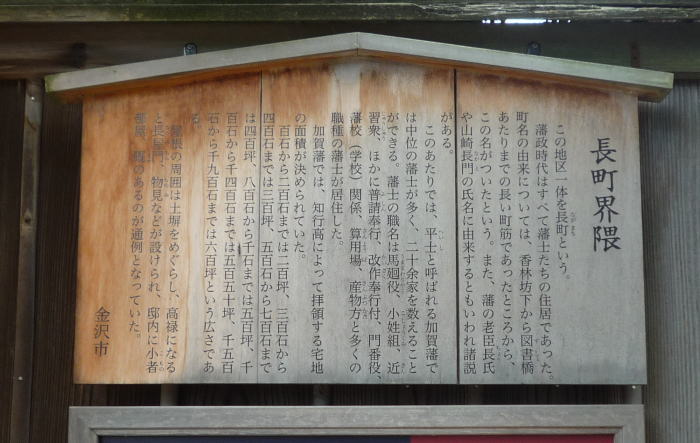 長町界隈
この地区一体を長町という。
藩政時代はすべて藩士たちの住居であった。
町名の由来については、香林坊下から図書橋
あたりまでの長い町筋であったところから、
この名がついたという。また、藩の老臣長氏
や山崎長門の氏名に由来するともいわれ諸説
がある。
このあたりでは、平士と呼ばれる加賀藩で
は中位の藩士が多く、二十余家を数えること
ができる。藩士の職名は馬廻役、小姓組、近
習衆、ほかに普請奉行、改作奉行付、門番役、
藩校(学校)関係、算用場、産物方と多くの
職種の藩士が居住した。
加賀藩では、知行高によって拝領する宅地
の面積が決められていた。
百石から二百石までは二百坪、三百石から
四百石までは三百坪、五百石から七百石まで
は四百坪、八百石から千石までは五百坪、千
百石から千四百石までは五百五十坪、千五百
石から千九百石までは六百坪という広さであ
る。
屋根の周囲は土塀をめぐらし、高禄になる
と長屋門、物見などが設けられ、邸内に小者
部屋、厩のあるのが通例となっていた。
金沢市